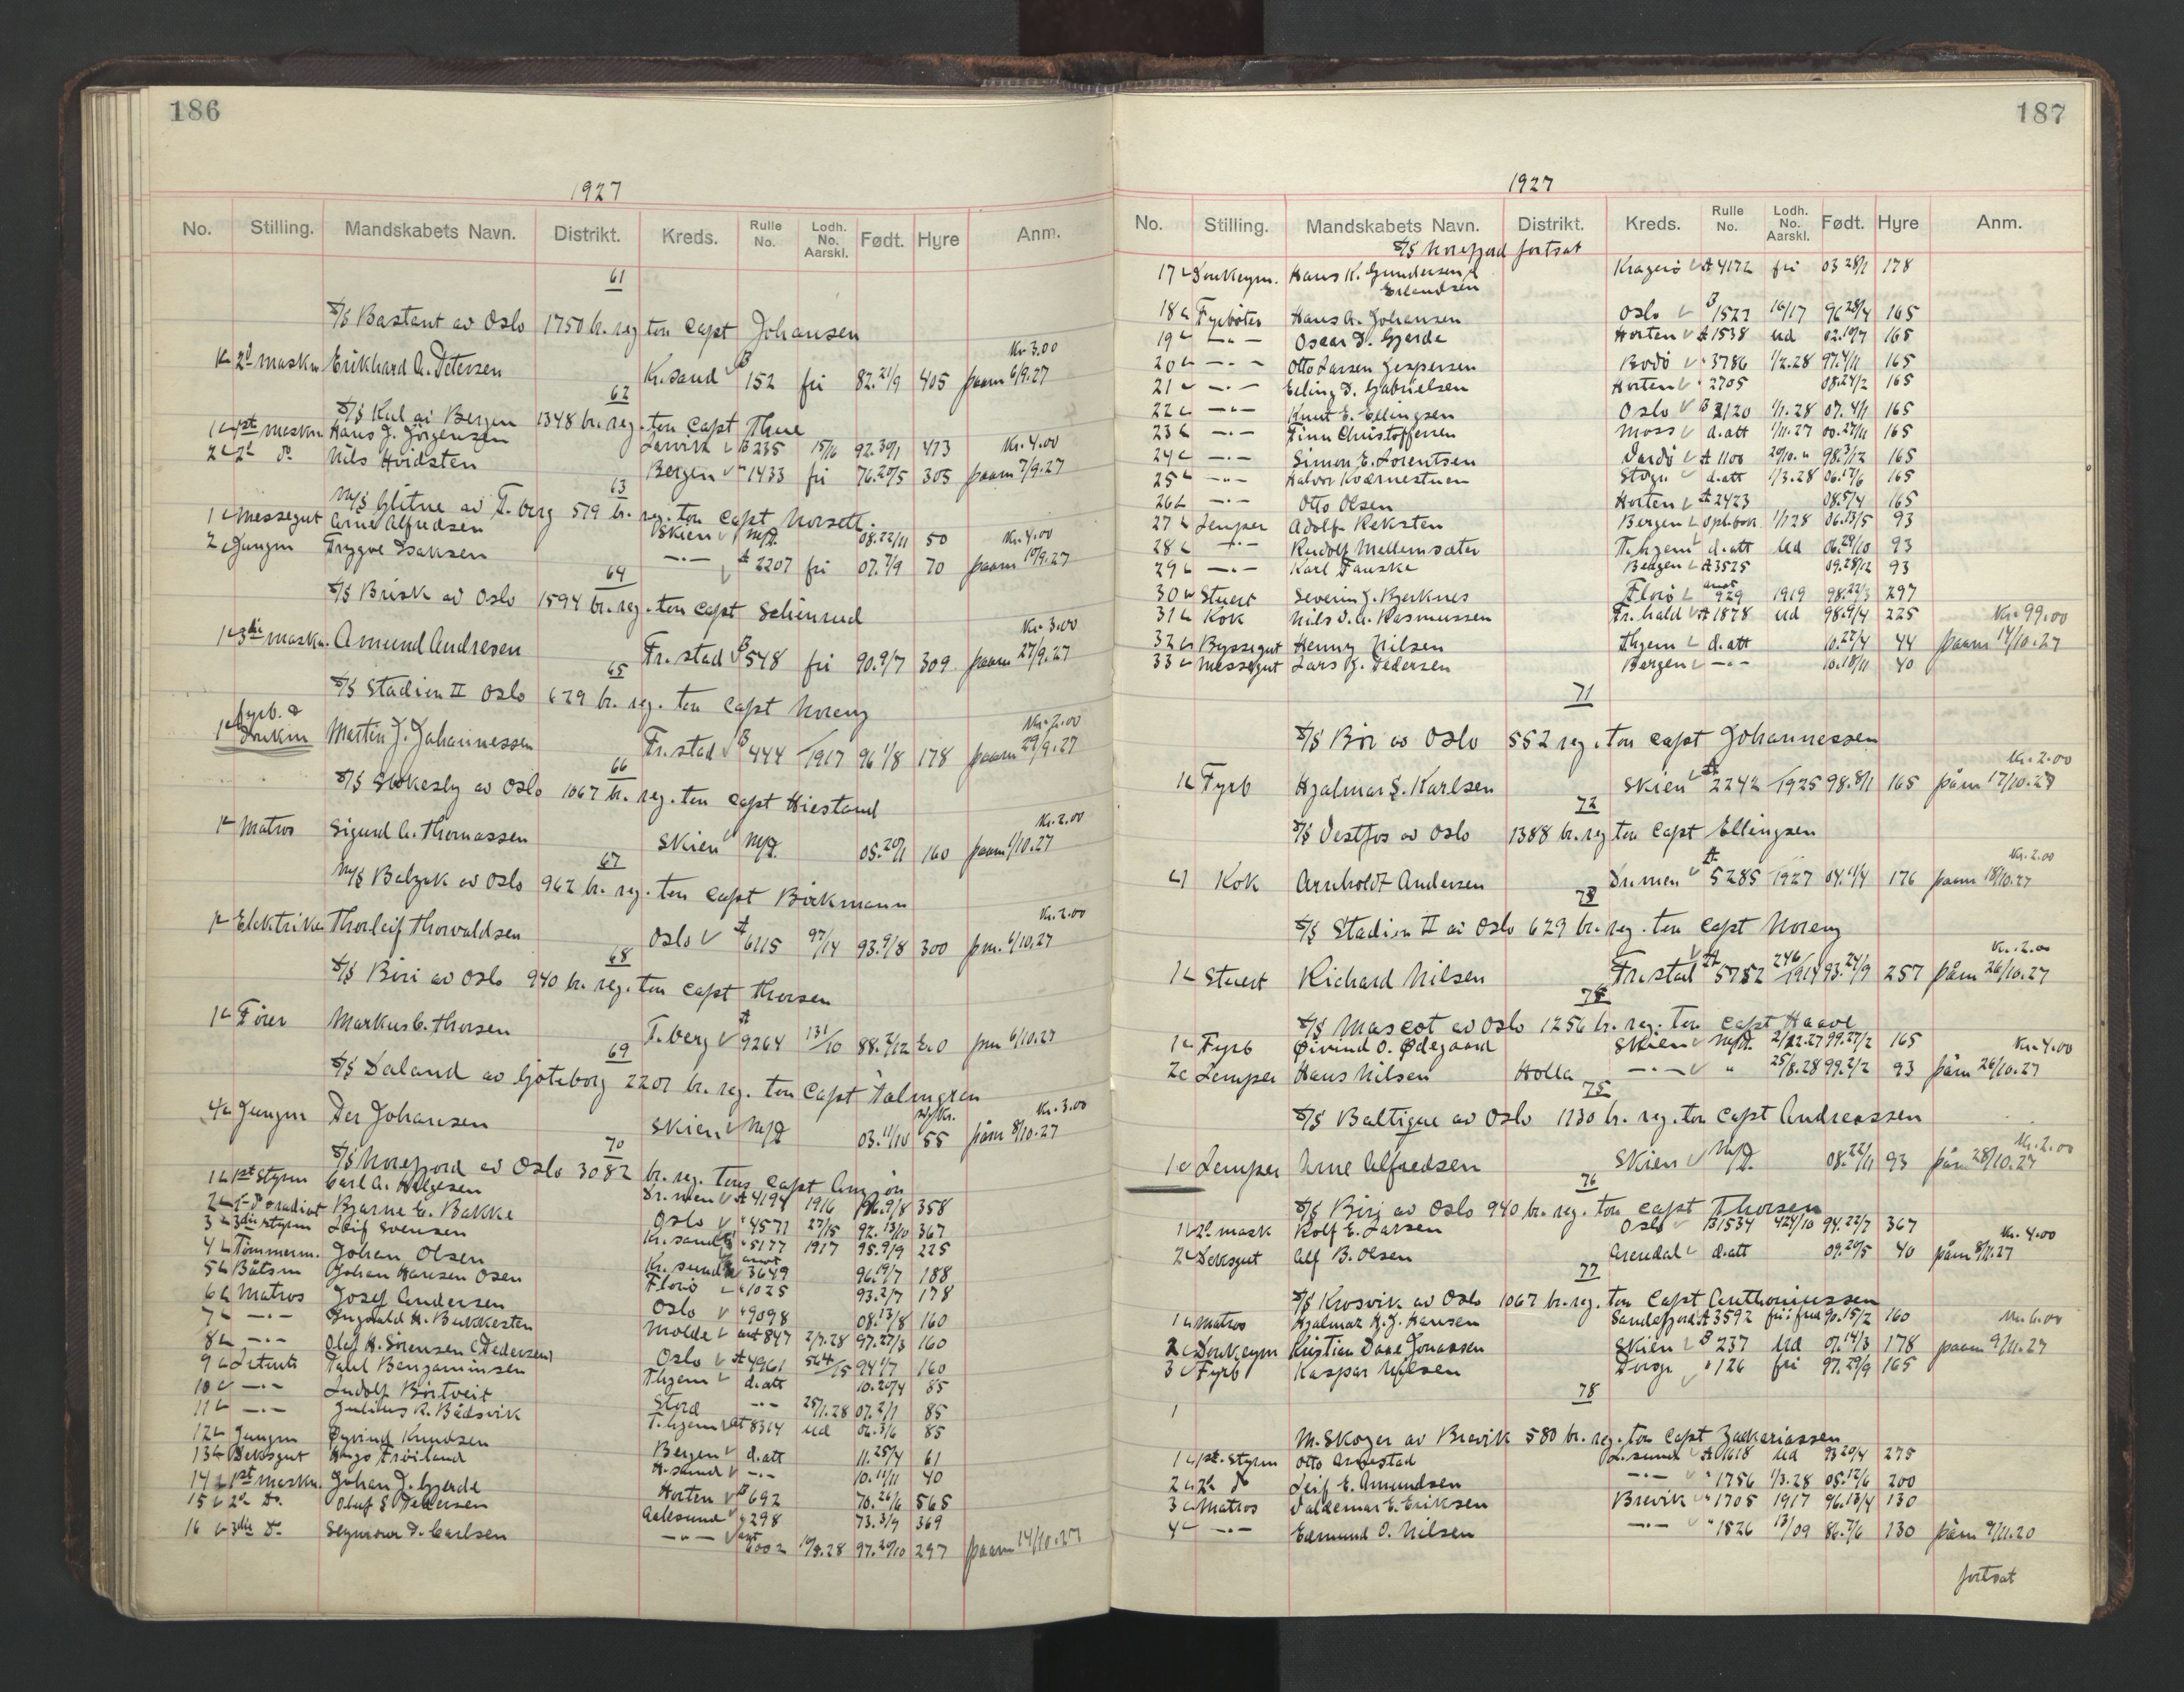 186
1927
No. Stilling. Mandskabets Navn. Distrikt. Kreds. Rulle No. Lodh. No. Aarskl. Født. Hyre Anm.
61
S/S Bastant av Oslo 1750 br. reg ton Capt Johansen
Kr 3.00
1 2d maskm Erikhard A. Petersen Kr.sand B 152 fri 82.21/9 405 paam 6/9.27
62
S/S Kul av Bergen 1348 br. reg. ton Capt Thue
1 1st maskm Hans J. Jörgensen Larvik B 235 15/16 92.30/1 473 Kr. 4.00
2 2d do Nils Hvidsten Bergen " 1433 fri 76.20/5 305 paam 7/9.27
63
M/S Glitne av T.berg 579 br. reg. ton Capt Norsett.
1 Messegut Arne Alfredsen Skien 08.22/11 50 Kr. 4.00
2 Jungm Trygve Isaksen -"- A 2207 fri 07.7/9 70 paam 19/9.27
64
S/S Brisk av Oslo 1594 br. reg. ton Capt Schienrud
Kr. 3.00
1 3die maskm. Amund Andresen Fr.stad B 548 fri 90.9/7 309 paam 27/9.27
65
S/S Stadion II Oslo 629 br. reg. ton Capt Noreng
Kr. 2.00
1 fyrb. & Donkm Martin J. Johannessen Fr.stad B 444 /1917 96 1/8 178 paam 29/9.27
66
S/S Stokesby av Oslo 1067 br. reg. ton Capt Hiestand
Kr. 2.00
1 Matros Sigurd A. Thomassen Skien 05.20/1 160 paam 1/10.27
67
M/S Balzak av Oslo 962 br. reg. ton Capt Birkmann
Kr. 2.00
1 Elektriker Thorleif Thorvaldsen Oslo A 6115 97/14 93.9/8 300 pm. 6/10.27
68
S/S Biri av Oslo 940 br. reg. ton Capt Thorsen
1 Förer Markus C. Thorsen T.berg A 9264 131/10 88.2/12 E.O pm 6/10.27
69
S/S Daland av Göteborg 2201 br. reg. ton Capt Palmgren
Kr. 3.00
4 Jungm Per Johansen Skien 03.11/10 55 paam 8/10.27
70
S/S Norefjord av Oslo 3082 br. reg. tons Capt
1 1st Styrm Carl A. Helgesen Dr.men A 4194 1916 96.9/8 358
2 Bjarne E. Bakke Oslo " 4571 27/15 92.13/10 367
3 3die styrm Leif Svensen Kr.sand " 5177 1917 95.9/9 225
4 Tömmerm. Johan Olsen Kr.sund 3649 96.19/7 188
5 Båtsm Johan Hansen Osen Florö " 1025 93.2/7 178
6 Matros Josef Andersen Oslo " 9098 08.13/8 160
7 -"- Ingvald H. Bukkesten Molde 847 2/7.28 97.27/3 160
8 -"- Olof H. Sörensen (Pedersen) Oslo A 4961 564/15 94 1/7 160
9 Letmts Paul Benjaminsen T.hjem d.att 10.20/4 85
10 -"- Ludolf Birtveit Stord -"- 25/1.28 07.2/1 85
11 -"- Julius R. Bådsvik T.hjem 8314 Ud 06.3/6 85
12 Jungm Øyvind Knudsen Bergen d.att 11.25/4 61
13 Deksgut Hugo Tröiland H.sund -"- 10.11/11 40
14 1st maskm. Johan J. Gjerde Horten B 692 70.26/6 565
15 2d Do. Oluf S. Pedersen Aalesund " 298 73.3/9 369
16 3die Do Seymour D. Carlsen -"- 6002 10/8.28 97.20/10 297 paam 14/10.27
187
1927
No. Stilling. Mandskabets Navn. Distrikt. Kreds. Rulle No. Lodh. No. Aarskl. Født. Hyre Anm.
S/S Norefjord fortsat
17 Donkeym. Hans K. Gundersen Kragerö A 4172 fri 03 28/1 178
Erlandsen
18 Fyrböter Hans A. Johansen Oslo B 1527 16/17 96 28/4 165
19 -"- Oscar D. Gjerde Horten A 1538 Ud 02.10/7 165
20 -"- Otto Larsen Jespersen Bodö " 3786 1/2.28 97.4/11 165
21 -"- Erling D. Gabrielsen Horten " 2705 08.24/2 165
22 -"- Knut E. Ellingsen Oslo B 2120 1/1.28 07.4/1 165
23 -"- Finn Christoffersen Moss d.att 1/11.27 00.27/11 165
24 -"- Simon E. Lorentsen Vardö A 1100 29/10." 98.3/12 165
25 -"- Halvor Kværnestuen d.att 1/3.28 06.17/6 165
26 -"- Otto Olsen Horten A 2423 08.5/4 165
27 Lemper Adolf Reksten Bergen 1/1 28 06.13/5 93
28 -"- Rudolf Mellemsæter T.hjem d.att Ud 06.29/10 93
29 -"- Karl Fauske Bergen A 3525 09.28/12 93
30 Stuert Severin J. Bjerknes Florö 929 1919 98.22/3 297
31 Kok Nils D. A. Rasmussen Fr.hald A 1878 Ud 98.9/4 225 Kr. 99.00
32 Byssegut Henry Nilsen T.hjem d.att 10.27/4 44 paam 14/10.27
33 Messegut Lars J. Pedersen Bergen -"- 10.18/11 40
71
S/S Bör av Oslo 552 reg. ton Capt Johannessen
Kr. 2.00
1 Fyrb Hjalmar S. Karlsen Skien A 2242 /1925 98.8/1 165 påm 17/10.27
72
S/S Vestfos av Oslo 1388 br. reg ton Capt Ellingsen
Kr. 2.00
1 Kok Arnholdt Andersen Dr.men A 5285 1927 04.1/4 176 paam 18/10.27
73
S/S Stadion II av Oslo 629 br. reg. ton Capt Noreng
Kr. 2.00
1 Stuert Richard Nilsen Fr.stad A 5752 246/1914 93.24/9 257 påm 26/10.27
74
S/S Mascot av Oslo 1256 br. reg. ton Capt Haave
1 Fyrb Øivind O. Ødegaard Skien 2/12.27 99.27/2 165 Kr. 4.00
2 Lemper Hans Nilsen Holla -"- " 25/8.28 99.2/2 93 påm 26/10.27
75
S/S Baltique av Oslo 1130 br. reg. ton Capt Andreassen
Kr. 2.00
1 Lemper Arne Alfredsen Skien 08.22/11 93 påm 28/10.27
76
S/S Biri av Oslo 940 br. reg. ton Capt Thorsen
1 2d mask Rolf E. Larsen Oslo B 1534 424/10 94.22/7 367 Kr. 4.00
2 Deksgut Alf B. Olsen Arendal d.att 09.20/5 40 påm 8/11.27
77
S/S Krosvik av Oslo 1067 br. reg. ton Capt Anthoniussen
1 Matros Hjalmar K. J. Hansen Sandefjord A 3592 fri i fred 90.15/2 160 Kr. 6.00
2 Donkeym Kristian Dane Jonassen Skien B 237 Ud 07.14/3 178 paam 9/11.27
3 Fyrb Kaspar Nilsen " 126 fri 97.29/9 165
78
1
M. Skoger av Brevik 580 br. reg. ton Capt Zackariassen
1 1st. Styrm Otto Arnestad L.sund A 1618 Ud 93 20/4 275
2 2d Do Leif E. Amundsen -"- " 1756 1/3.28 05.12/6 200
3 Matros Valdemar E. Eriksen Brevik " 1705 1917 96.13/4 130
4 -"- Edmund O. Nilsen -"- " 1526 13/09 86.7/6 130 påm 9/11.20
fortsat